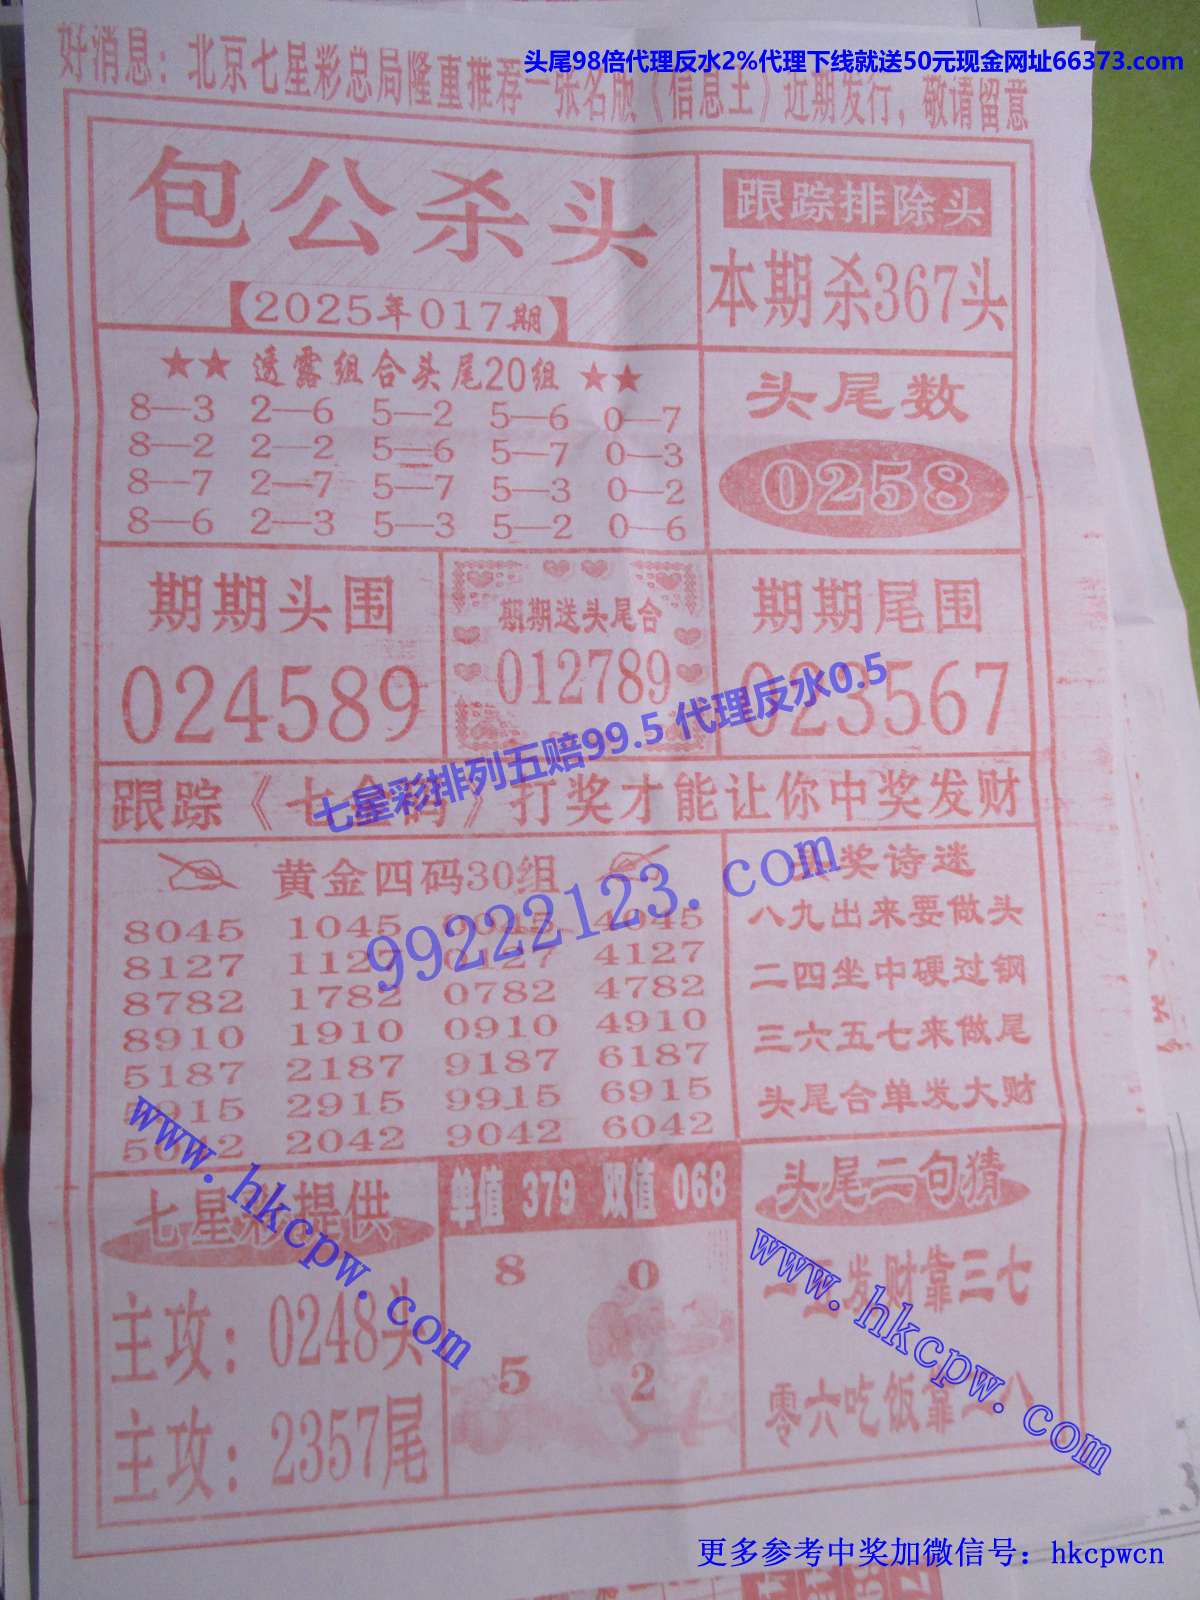 头尾98倍代理反水2%代理下线就送50元现金网址66373.com
好消息：北京七星彩总局隆重推荐一张名版《信息王》近期发行，敬请留意
包公杀头
【2025年017期】
跟踪排除头
本期杀367头
★★ 透露组合头尾20组 ★★
8—3 2—6 5—2 5—6 0—7
8—2 2—2 5—6 5—7 0—3
8—7 2—7 5—7 5—3 0—2
8—6 2—3 5—3 5—2 0—6
头尾数
0258
期期头围
024589
期期送头尾合
012789
期期尾围
023567
七星彩排列五赔99.5 代理反水0.5
跟踪《七星码》打奖才能让你中奖发财
黄金四码30组
8045 1045 0045 4045
8127 1127 0127 4127
8782 1782 0782 4782
8910 1910 0910 4910
5187 2187 9187 6187
5915 2915 9915 6915
5042 2042 9042 6042
99222123.com
奖诗迷
八九出来要做头
二四坐中硬过钢
三六五七来做尾
头尾合单发大财
www.hkcpw.com
七星彩提供
主攻：0248头
主攻：2357尾
单值 379 双值 068
8 0
5 2
头尾二句猜
发财靠三七
零六吃饭靠八
www.hkcpw.com
更多参考中奖加微信号：hkcpwcn